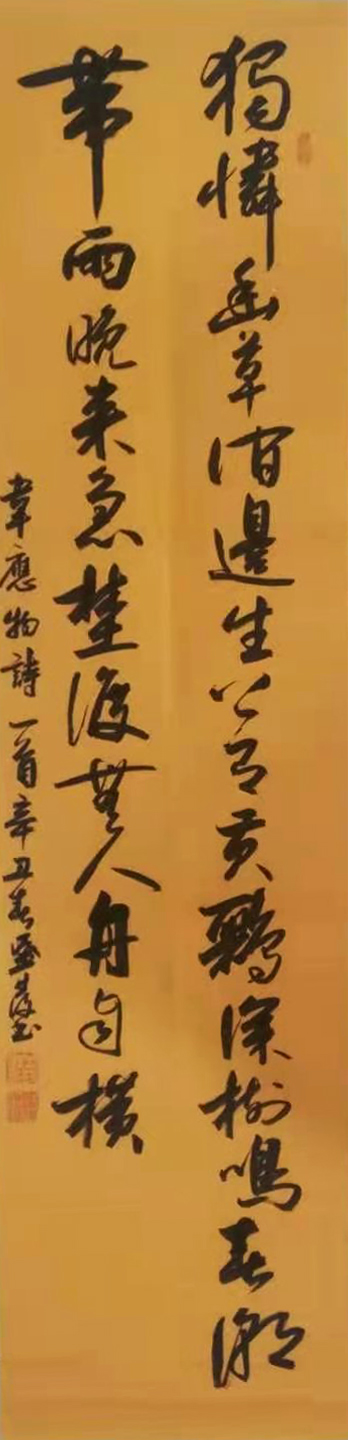 獨憐幽草澗邊生上有黃鸝深樹鳴春潮
帶雨晚来急埜渡無人舟自橫
韋應物詩一首辛丑春